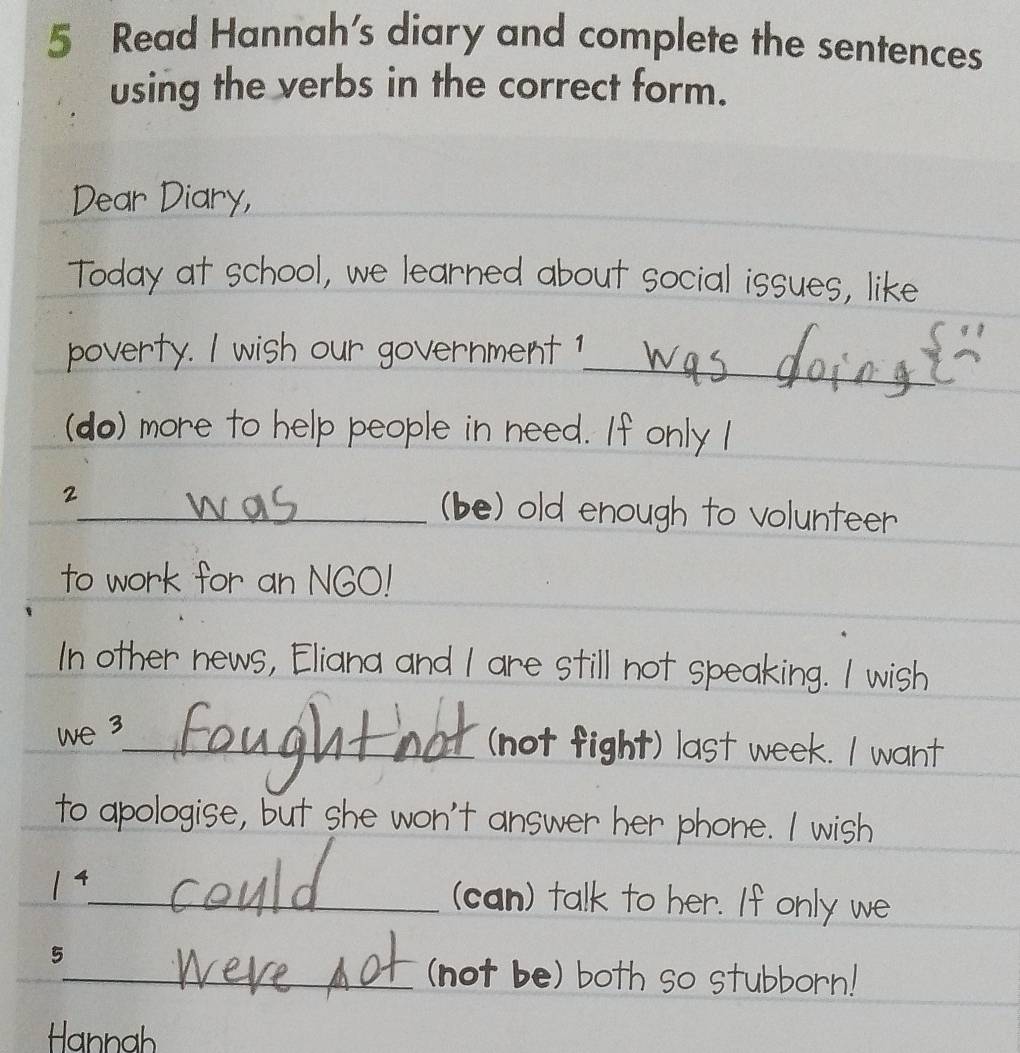 5 Read Hannah's diary and complete the sentences
using the verbs in the correct form.
Dear Diary,
Today at school, we learned about social issues, like
poverty. I wish our government 1 was doing
(do) more to help people in need. If only I
2 was (be) old enough to volunteer
to work for an NGO!
In other news, Eliana and I are still not speaking. I wish
we 3 fought not (not fight) last week. I want
to apologise, but she won't answer her phone. I wish
I 4 could (can) talk to her. If only we
5 were not (not be) both so stubborn!
Hannah